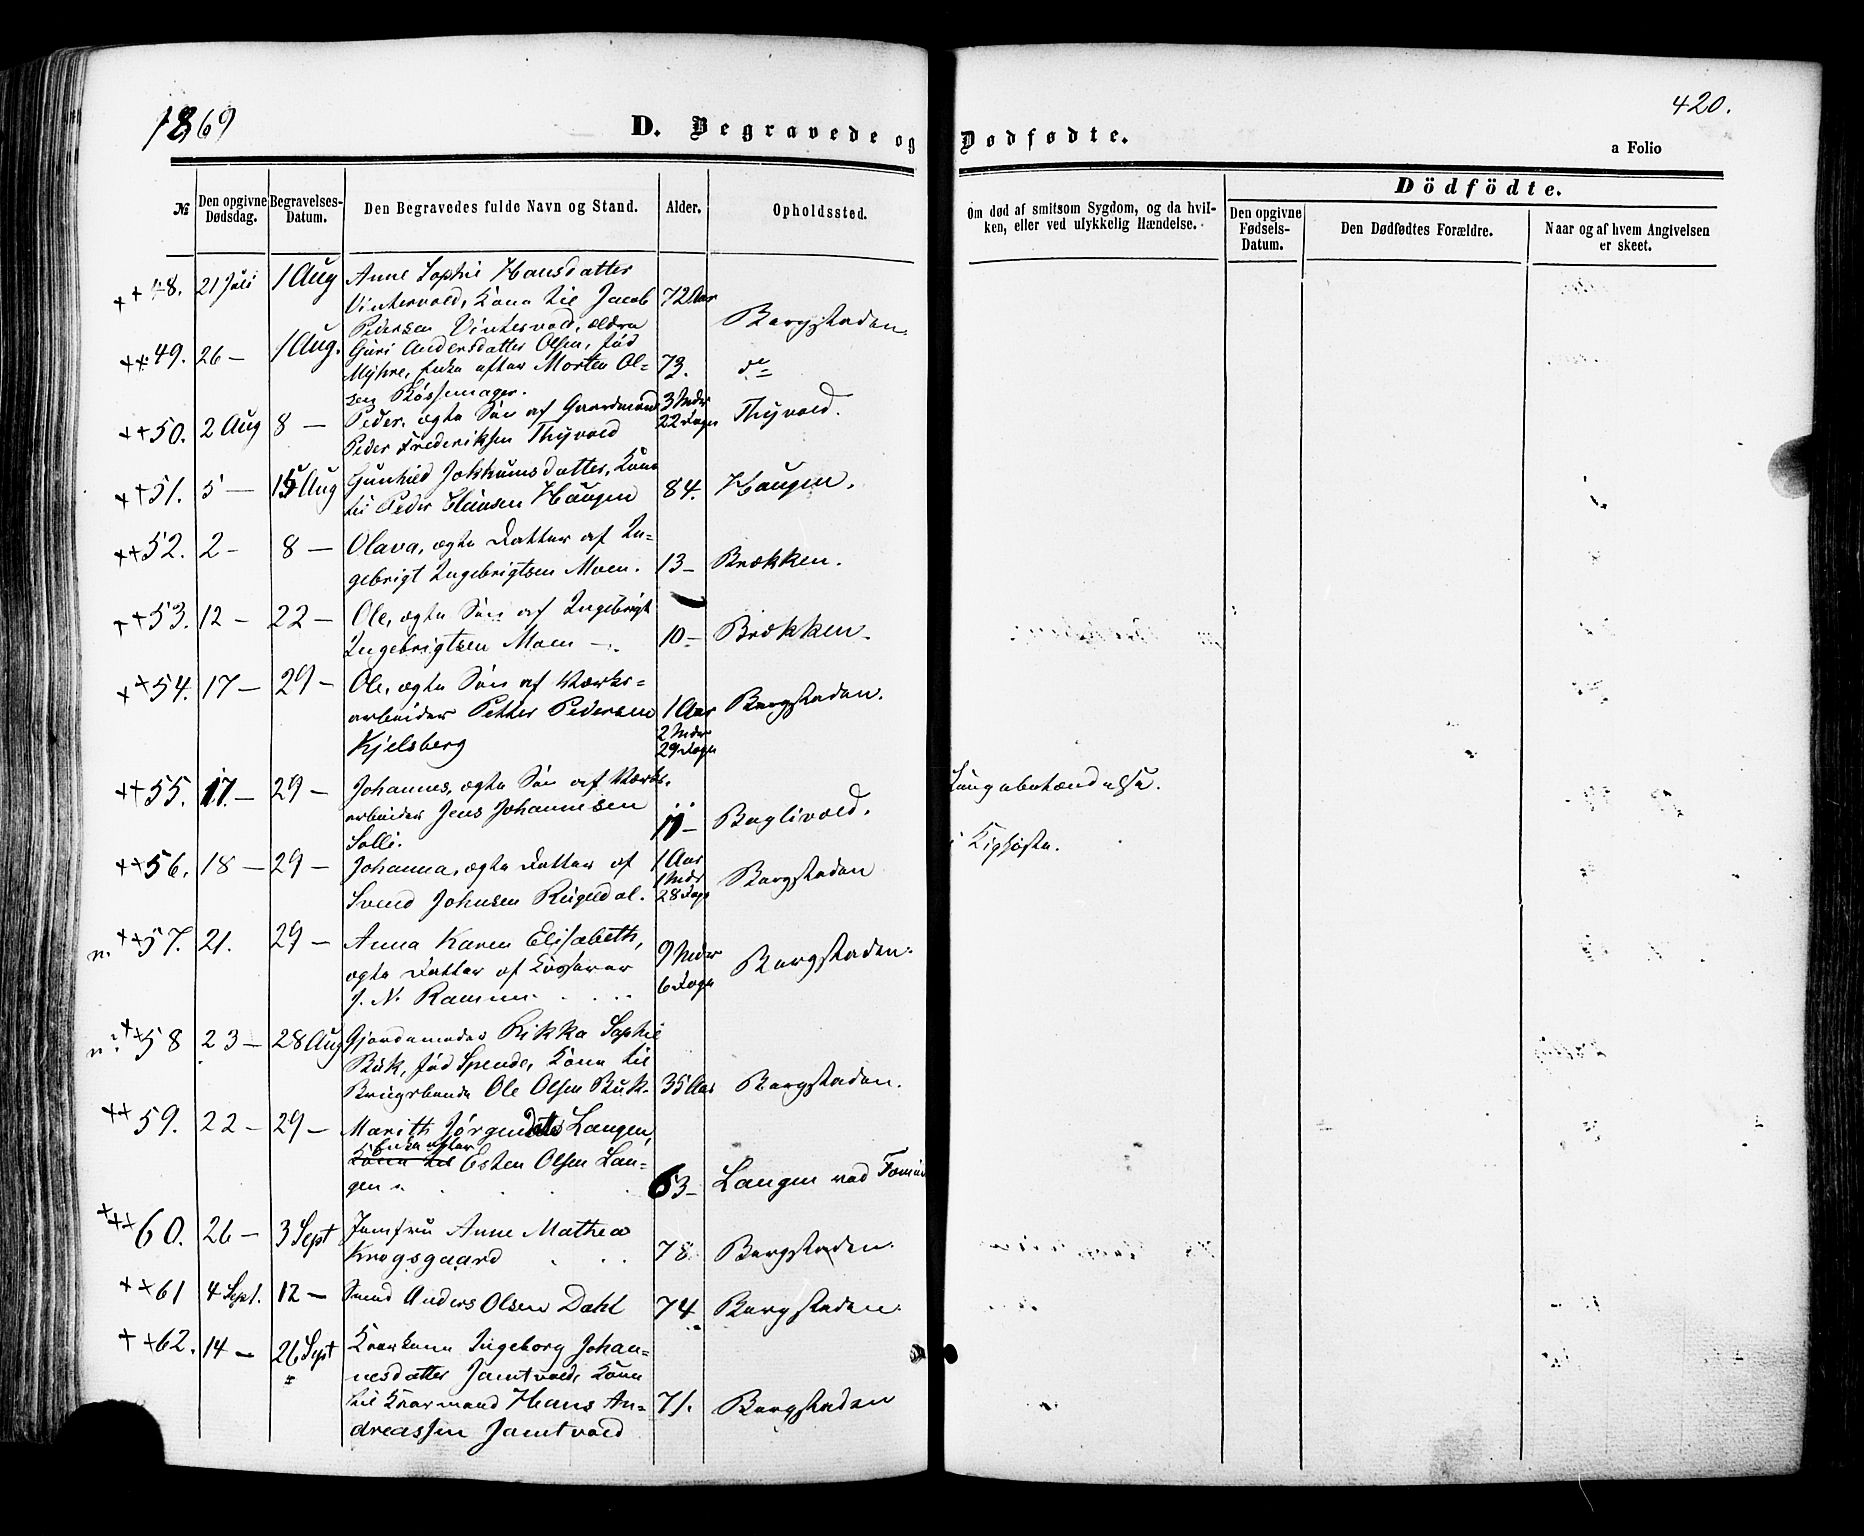 1869
420.
D. Begravede og Dødfødte.
a Folio
№
Den opgivne Dødsdag.
Begravelses-Datum.
Den Begravedes fulde Navn og Stand.
Alder.
Opholdssted.
Om død af smitsom Sygdom, og da hvil-
ken, eller ved ulykkelig Hændelse.
Dödfödte.
Den opgivne Fødsels-Datum.
Den Dødfødtes Forældre.
Naar og af hvem Angivelsen er skeet.
++48. 21 Juli 1 Aug Anne Sophie Hansdatter
Vintervold, Kone til Jacob 72 Aar
Pedersen Vintervold, ældre Bergstaden.
++49. 26 — 1 Aug. Guri Andersdatter Olsen, fød
Myhre, Enke efter Morten Ol= 73. do=
sen Bøssemager.
++50. 2 Aug 8 — Peder, ægte Søn af Gaardmand 3 Mdr Thyvold.
Peder Frederiksen Thyvold 22 Dage
++51. 5 — 15 Aug Gunhild Jokhumsdatter, Kone
til Peder Hansen Haugen 84. Haugen.
++52. 2 — 8 — Olava, ægte Datter af In=
gebrigt Ingebrigtsen Moen. 13 — Brækken.
++53. 12 — 22 — Ole, ægte Søn af Ingebrigt
Ingebrigtsen Moen —. 10 — Brækken.
++54. 17 — 29 — Ole, ægte Søn af Værks=
arbeider Petter Pedersen 1 Aar Bergstaden.
Kjelsberg 2 Mdr
29 Dage
++55. 17. — 29 — Johannes, ægte Søn af Værks.
arbeider Jens Johannesen 11 — Baglivold.
Solli.
Lungebetændelse.
++56. 18 — 29 — Johanna, ægte Datter af 1 Aar
1 Mdr Bergstaden
Svend Johnsen Rugldal. 28 Dage
Kighoste.
n. ++57. 21. 29 — Anna Karen Elisabeth, 9 Mdr
ægte Datter af Kasserer 6 Dage Bergstaden.
J. N. Ramm
n. ++58 23 — 28 Aug Gjordemoder Rikka Sophie
Buk, fød Spende, Kone til
Brugsbonde Ole Olsen Buk. 35 Aar Bergstaden.
++59. 22 — 29 — Marith Jørgensdatter Langen,
Enke efter
Kone til Esten Olsen Lan=
gen 63 — Langen ved
+++60. 26 — 3 Sept Jomfru Anne Mathea
Krogsgaard 78. Bergstaden.
++61 4 Sept. 12 — Smed Anders Olsen Dahl 74. Bergstaden.
++62. 14 — 26 Sept Ingeborg Johan=
nesdatter Jamtvold, Kone
til Hans An= 71. Bergstaden
dreassen Jamtvold